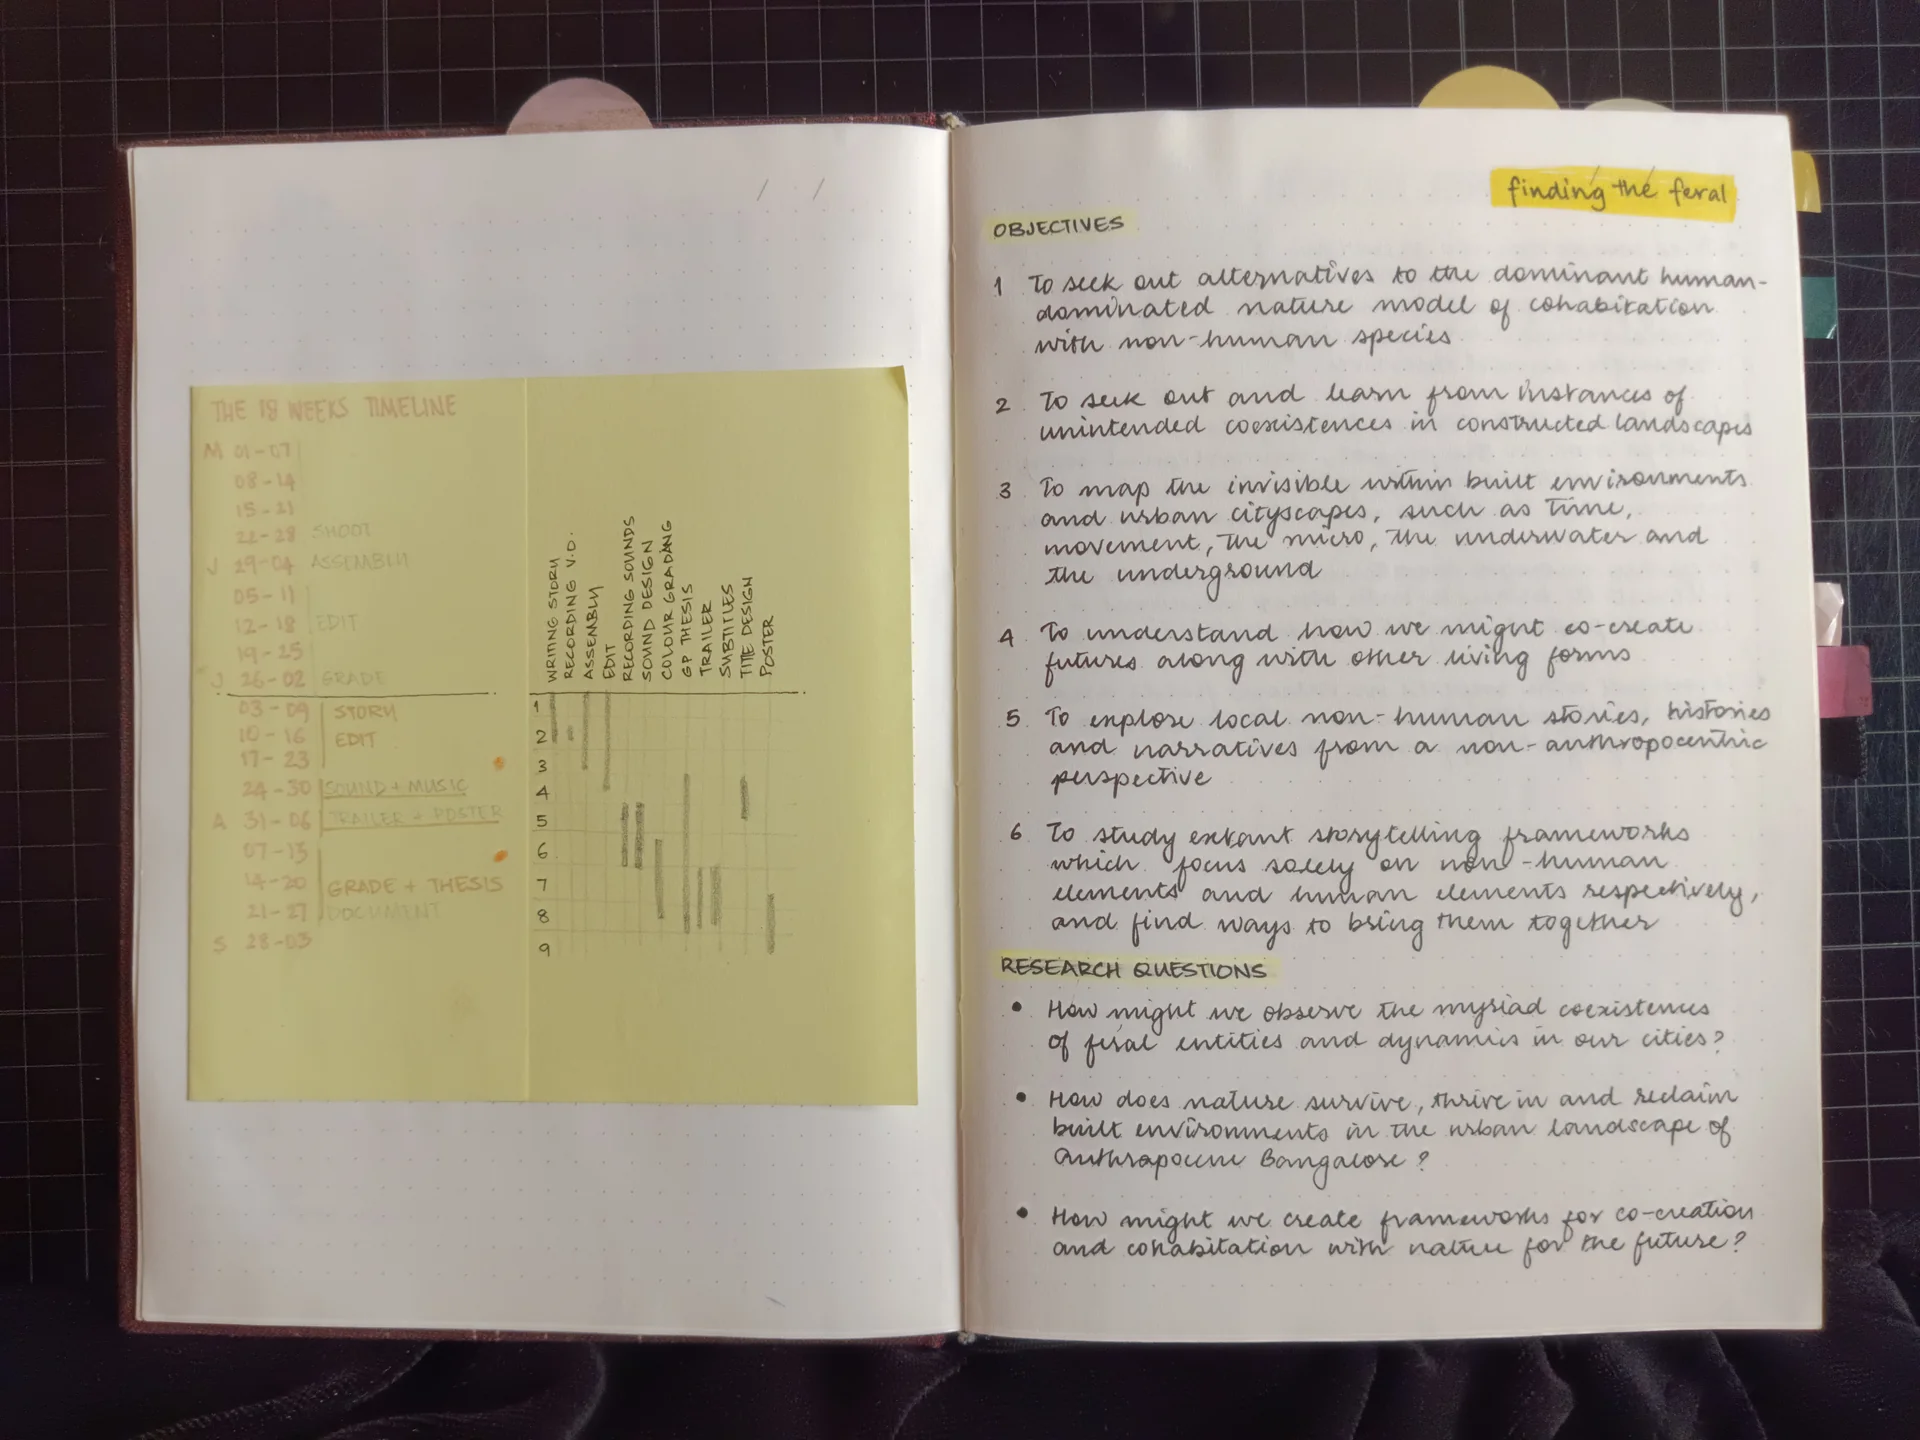 THE 18 WEEKS TIMELINE
M 01-07
08-14
15-21
22-28 SHOOT
J 29-04 ASSEMBLY
05-11
12-18 EDIT
19-25
J 26-02 GRADE
03-09 STORY
10-16 EDIT
17-23
24-30 SOUND + MUSIC
A 31-06 TRAILER + POSTER
07-13
14-20 GRADE + THESIS
21-27 DOCUMENT
S 28-03
WRITING STORY
RECORDING V.O.
ASSEMBLY
EDIT
RECORDING SOUNDS
SOUND DESIGN
COLOUR GRADING
GP THESIS
TRAILER
SUBTITLES
TITLE DESIGN
POSTER
1
2
3
4
5
6
7
8
9
finding the feral
OBJECTIVES
1 To seek out alternatives to the dominant human-
dominated nature model of cohabitation
with non-human species
2 To seek out and learn from instances of
unintended coexistences in constructed landscapes
3 To map the invisible within built environments
and urban cityscapes, such as time,
movement, the micro, the underwater and
the underground
4 To understand how we might co-create
futures along with other living forms
5 To explore local non-human stories, histories
and narratives from a non-anthropocentric
perspective
6 To study extant storytelling frameworks
which focus solely on non-human
elements and human elements respectively,
and find ways to bring them together
RESEARCH QUESTIONS
• How might we observe the myriad coexistences
of feral entities and dynamics in our cities?
• How does nature survive, thrive in and reclaim
built environments in the urban landscape of
anthropocene Bangalore?
• How might we create frameworks for co-creation
and cohabitation with nature for the future?